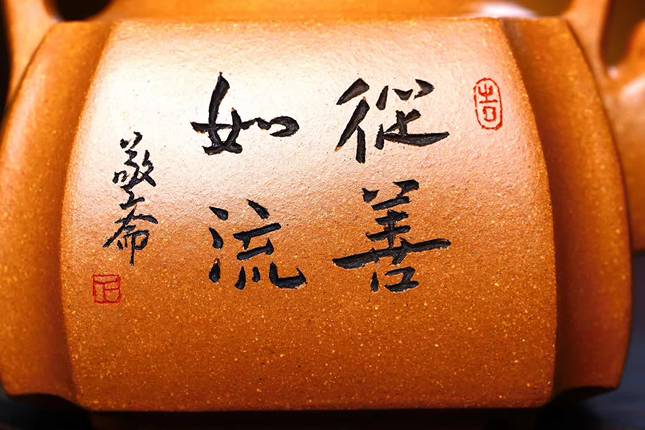 從善
如流
敬齋
吉